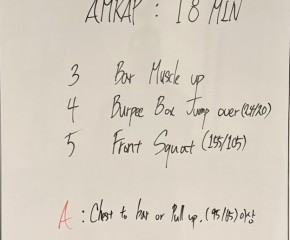 AMRAP : 18 MIN
3 Bar Muscle up
4 Burpee Box Jump over (24/20)
5 Front Squat (155/105)
A : Chest to bar or Pull up, (95/65) 이상